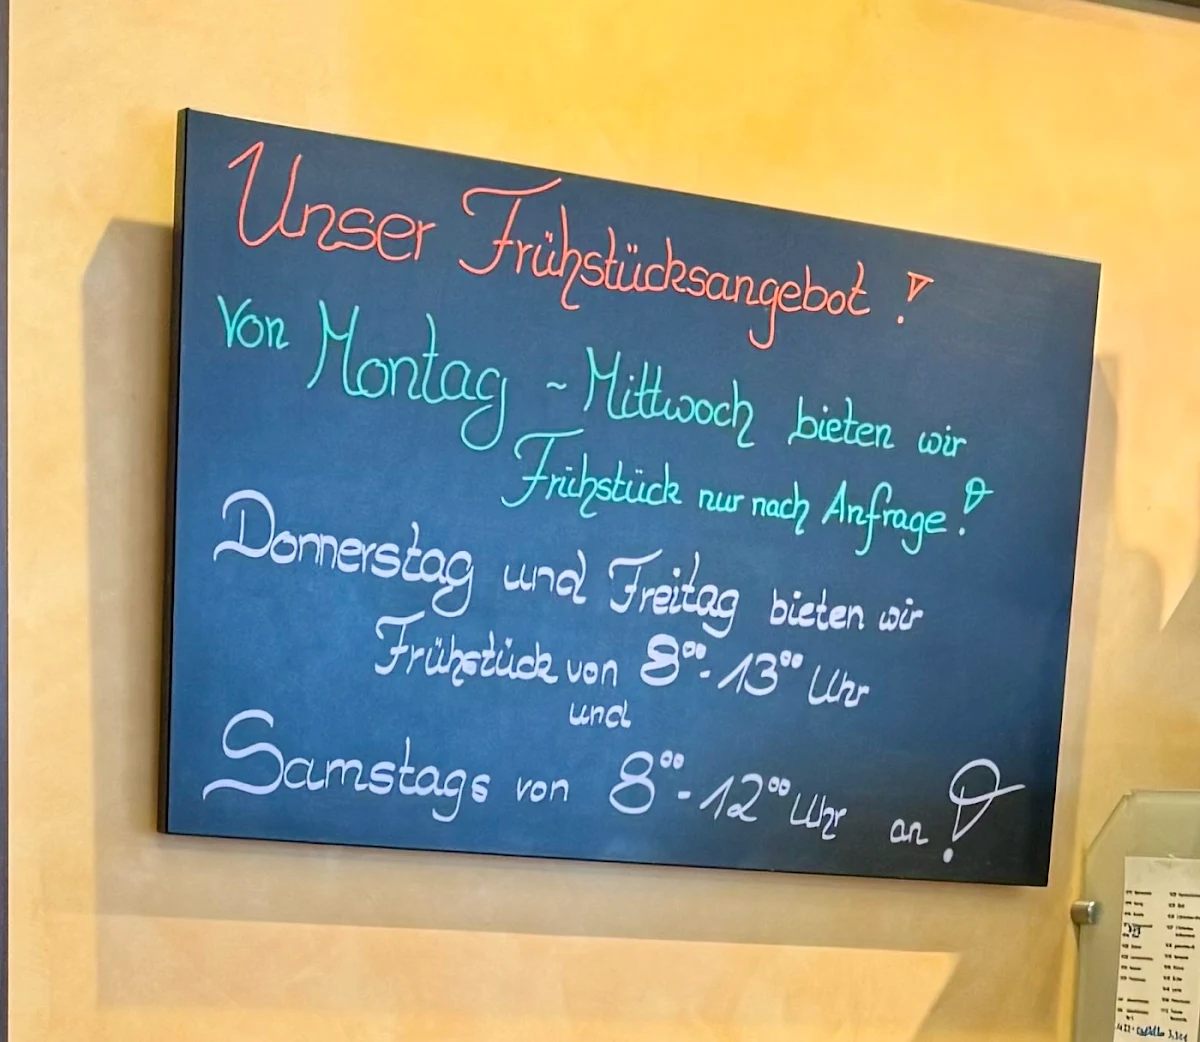 Unser Frühstücksangebot!
Von Montag ~ Mittwoch bieten wir
Frühstück nur nach Anfrage!
Donnerstag und Freitag bieten wir
Frühstück von 8⁰⁰-13⁰⁰ Uhr
und
Samstags von 8⁰⁰-12⁰⁰ Uhr an!